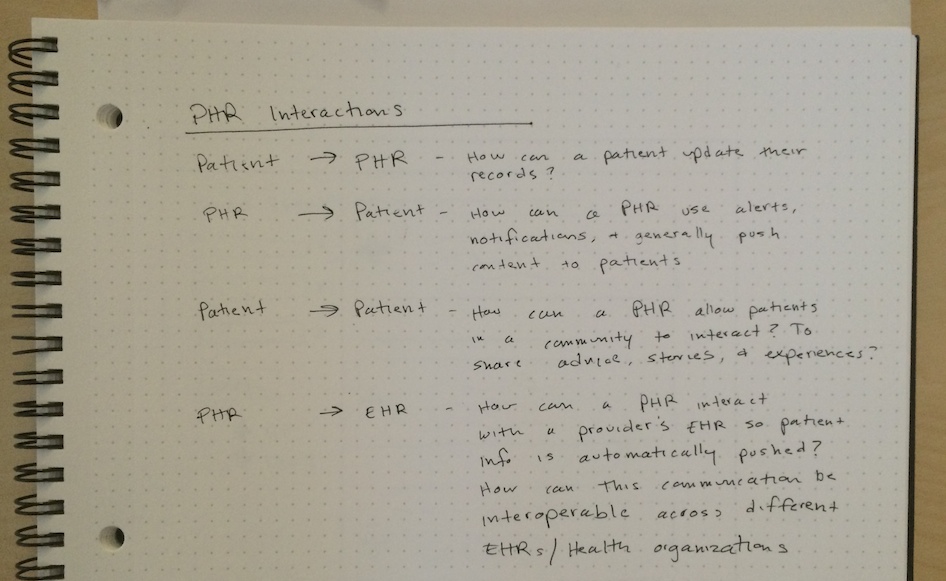 PHR Interactions
Patient → PHR - How can a patient update their
records?
PHR → Patient - How can a PHR use alerts,
notifications, + generally push
content to patients
Patient → Patient - How can a PHR allow patients
in a community to interact? To
share advice, stories, + experiences?
PHR → EHR - How can a PHR interact
with a provider's EHR so patient
info is automatically pushed?
How can this communication be
interoperable across different
EHRs/Health organizations